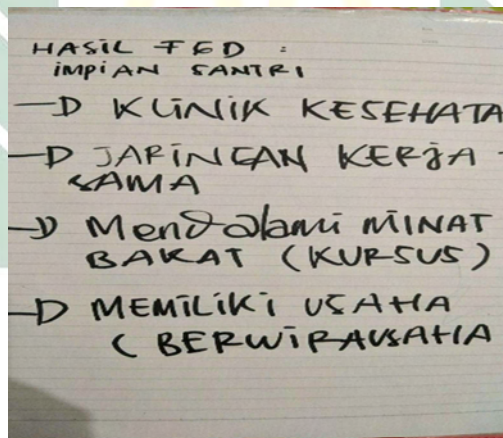 HASIL FGD :
IMPIAN SANTRI
→ KLINIK KESEHATA
→ JARINGAN KERJA
SAMA
→ Mendalami MINAT
BAKAT (KURSUS)
→ MEMILIKI USAHA
( BERWIRAUSAHA